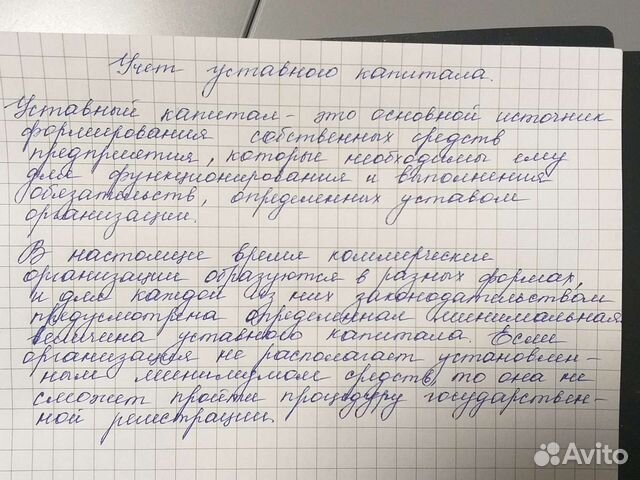 Учет уставного капитала.
Уставный капитал - это основной источник
формирования собственных средств
предприятия, которые необходимы ему
для функционирования и выполнения
обязательств, определенных уставом
организации.
В настоящие время коммерческие
организации образуются в разных формах,
и для каждой из них законодательством
предусмотрена определенная минимальная
величина уставного капитала. Если
организация не располагает установлен-
ным минимумом средств, то она не
сможет пройти процедуру государствен-
ной регистрации.
Avito